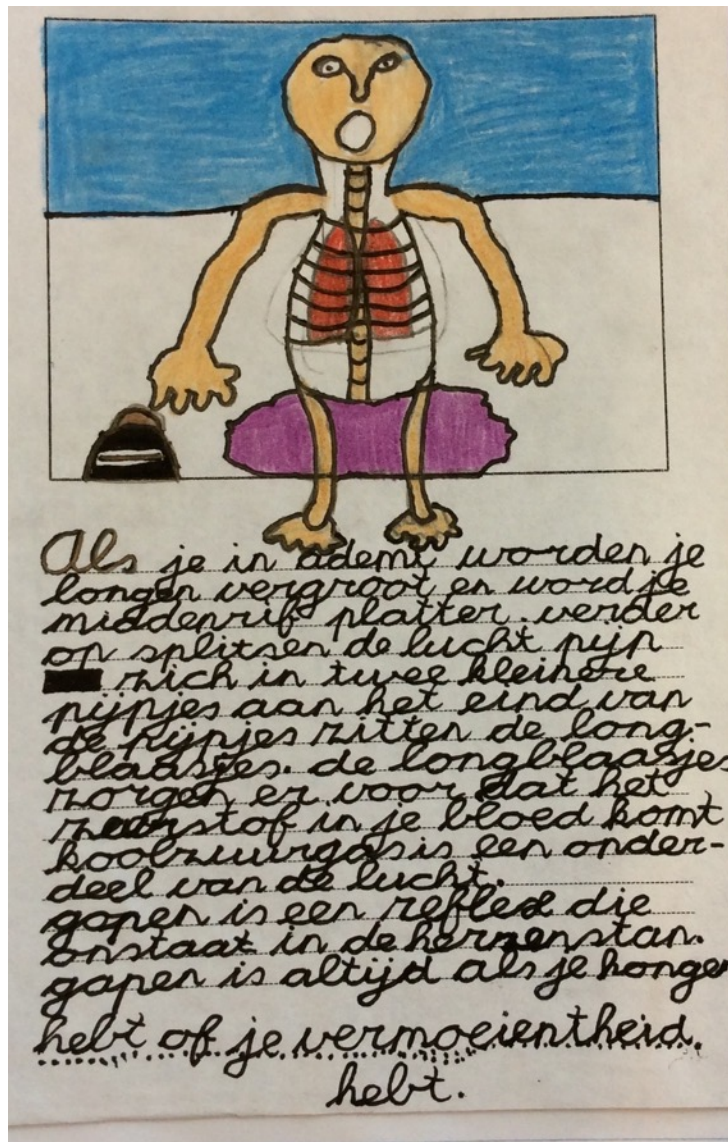 Als je in ademt worden je
longen vergroot en word je
middenrif platter. verder
op splitsen de lucht pijp
zich in twee kleinere
pijpjes aan het eind van
de pijpjes zitten de long-
blaasjes. de longblaasjes
zorgen er voor dat het
zuurstof in je bloed komt
koolzuurgas is een onder-
deel van de lucht.
gapen is een reflex die
onstaat in de herzenstan.
gapen is altijd als je honger
hebt of je vermoeientheid.
hebt.